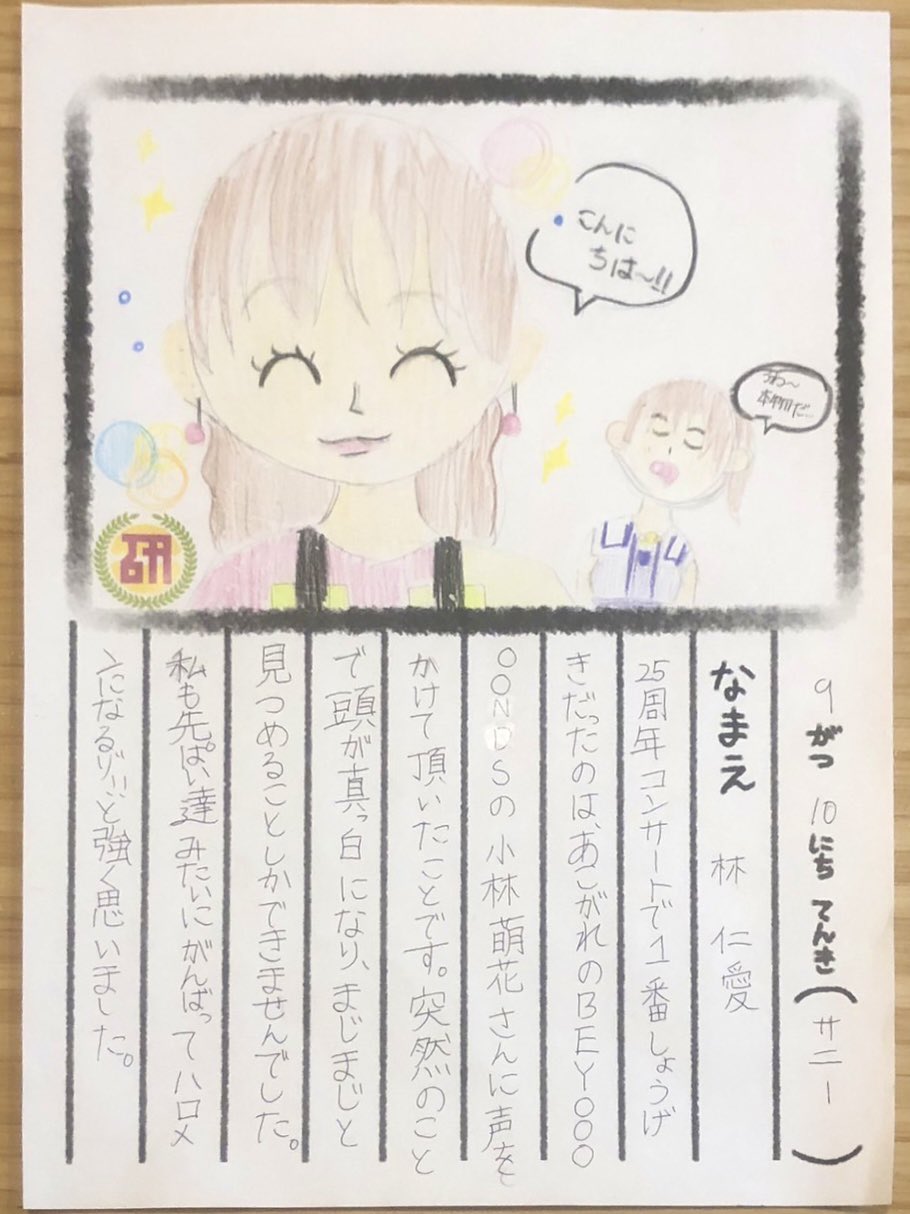 こんに
ちは〜!!
うわ〜
本物だ…
研
9がつ10にちてんき(サニー)
なまえ 林仁愛
25周年コンサートで1番しょうげ
きだったのは、あこがれのBEYOOO
OONDSの小林萌花さんに声を
かけて頂いたことです。突然のこと
で頭が真っ白になり、まじまじと
見つめることしかできませんでした。
私も先ぱい達みたいにがんばってハロメ
ンになるゾ!!と強く思いました。